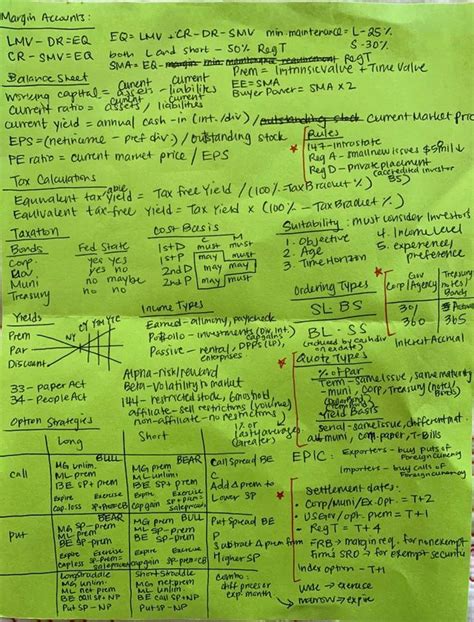 Margin Accounts:
LMV - DR = EQ
EQ = LMV + CR - DR - SMV
min maintenance = L - 25%
CR - SMV = EQ
both L and short - 50% Reg T
S - 30%
SMA = EQ - Reg T
Balance Sheet
Prem = Intrinsic value + Time Value
working capital = current assets - current liabilities
EE = SMA
Buyer Power = SMA x 2
current ratio = current assets / current liabilities
current yield = annual cash-in (int./div) / outstanding stock current Market Pric
EPS = (net income - pref div.) / outstanding stock
PE ratio = current market price / EPS
Rules
147 - intrastate
Reg A - small new issues
Reg D - private placement
(accredited investor
Tax Calculations
Equivalent taxable yield = Tax free Yield / (100% - Tax Bracket %)
Equivalent tax-free yield = Tax Yield x (100% - Tax Bracket %)
Taxation
Bonds Fed State
Corp. yes yes
Gov yes no
Muni no maybe
Treasury
Cost Basis
C M
1st D must must
1st P may must
2nd D may may
2nd P must may
Suitability: must consider Investors
1. Objective
2. Age
3. Time Horizon
4. Income level
5. experiences
preference
Ordering Types
SLBS
BL - SS
(reduced by cash div
on exdate)
Gov Corp/Agency
Treasury notes/Bonds
30/360
Actual/365
Interest Accrual
Yields
NY CY YTM YTC
Prem
Par
Discount
Income Types
Earned - alimony, paycheck
Portfolio - investments (DIV, Int,
capgains)
Passive - rental,
enterprises
Alpha - risk/reward
Beta - Volatility to market
144 - restricted stock, 6mos hold,
affiliate - sell restrictions (volume)
non-affiliate - no restrictions
33 - Paper Act
34 - People Act
Quote Types
% of Par
Term - same issue, same maturity
- muni, corp, Treasury (notes/
Bonds)
Yield Basis
Serial - same issue, different mat.
muni, com. paper, T-Bills
Option Strategies
Long Short
BULL
MG unlim.
ML prem
BE SP + prem
BEAR
MG prem
ML unlim.
BE SP + prem
Call
Expire Exercise
cap. loss
Expire Exercise
cap gain
Call Spread BE
Add Δ prem to
Lower SP
EPIC: Exporters - buy puts of
Foreign currency
Importers - buy calls of
Foreign currency
Put
BEAR
MG SP - prem
ML prem
BE SP - prem
BULL
MG prem
ML SP - prem
BE SP - prem
Expire Exercise
cap loss
Expire Exercise
cap gain
Put Spread BE
Subtract Δ prem from
Higher SP
Settlement dates:
Corp/muni/Ex. Opt. = T+2
US Gov/opt. prem = T+1
Reg T = T+4
FRB → margin req. for nonexempt
firms SRO → for exempt securit
Index option - T+1
Long straddle
MG unlim.
ML net prem
BE call SP + NP
Put SP - NP
Short straddle
MG net prem
ML unlim.
BE call SP + NP
Put SP - NP
Combo:
diff prices or
exp. month
wide → exercise
narrow → expire